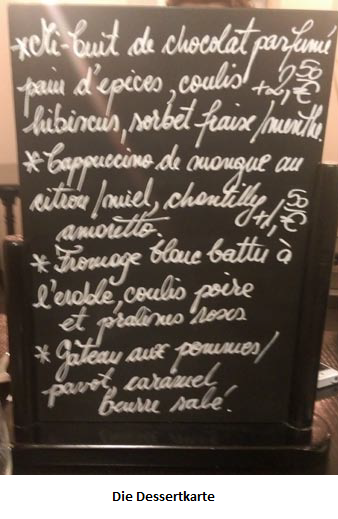 *Mi-Cuit de chocolat parfumé
pain d'épices, coulis +2,50€
hibiscus, sorbet fraise/menthe.
*Cappuccino de mangue au
citron/miel, chantilly +1,50€
amaretto.
*Fromage blanc battu à
l'érable, coulis poire
et pralines roses
*Gâteau aux pommes/
pavot, caramel
beurre salé.
Die Dessertkarte